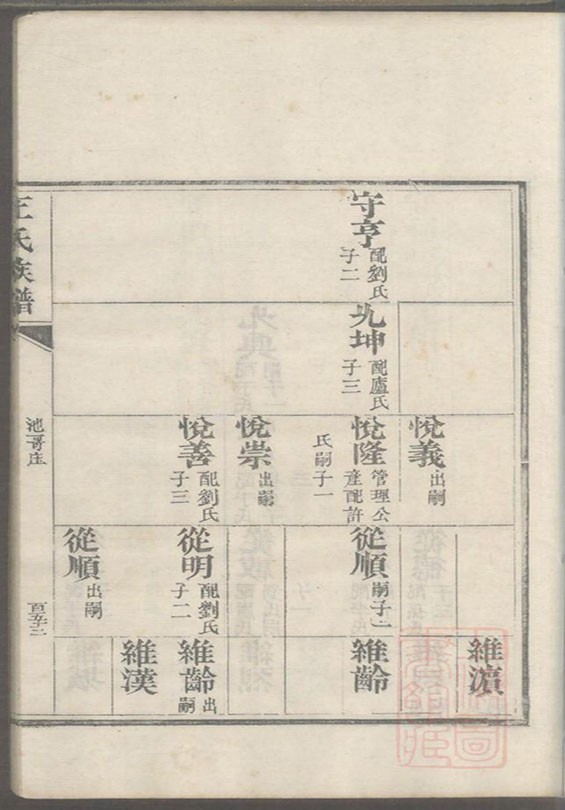 守亨 配劉氏子二
九坤 配盧氏子三
悅義 出嗣
悅隆 管理公產配許氏嗣子一
悅崇 出嗣
悅善 配劉氏子三
從順 嗣子一
從明 配劉氏子二
從順 出嗣
維濱
維齡
維齡 出嗣
維漢
王氏族譜
池哥庄